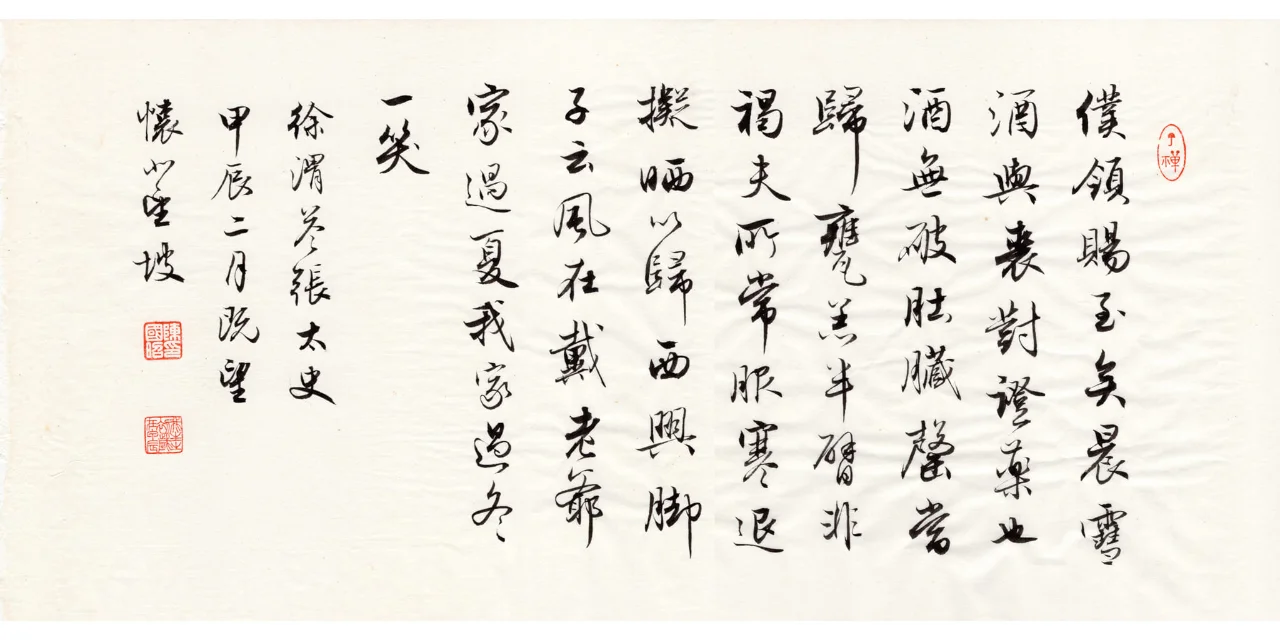 僕領賜至矣晨雪
酒與裘對證藥也
酒無破肚臟罄當
歸甕羔半臂非
褐夫所常服寒退
擬晒以歸西興脚
子云風在戴老爺
家過夏我家過冬
一笑
徐渭答張太史
甲辰二月既望
懷望坡